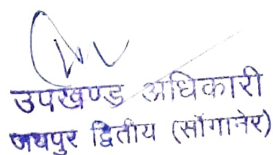 उपखण्ड अधिकारी
जयपुर द्वितीय (सॉंगानेर)